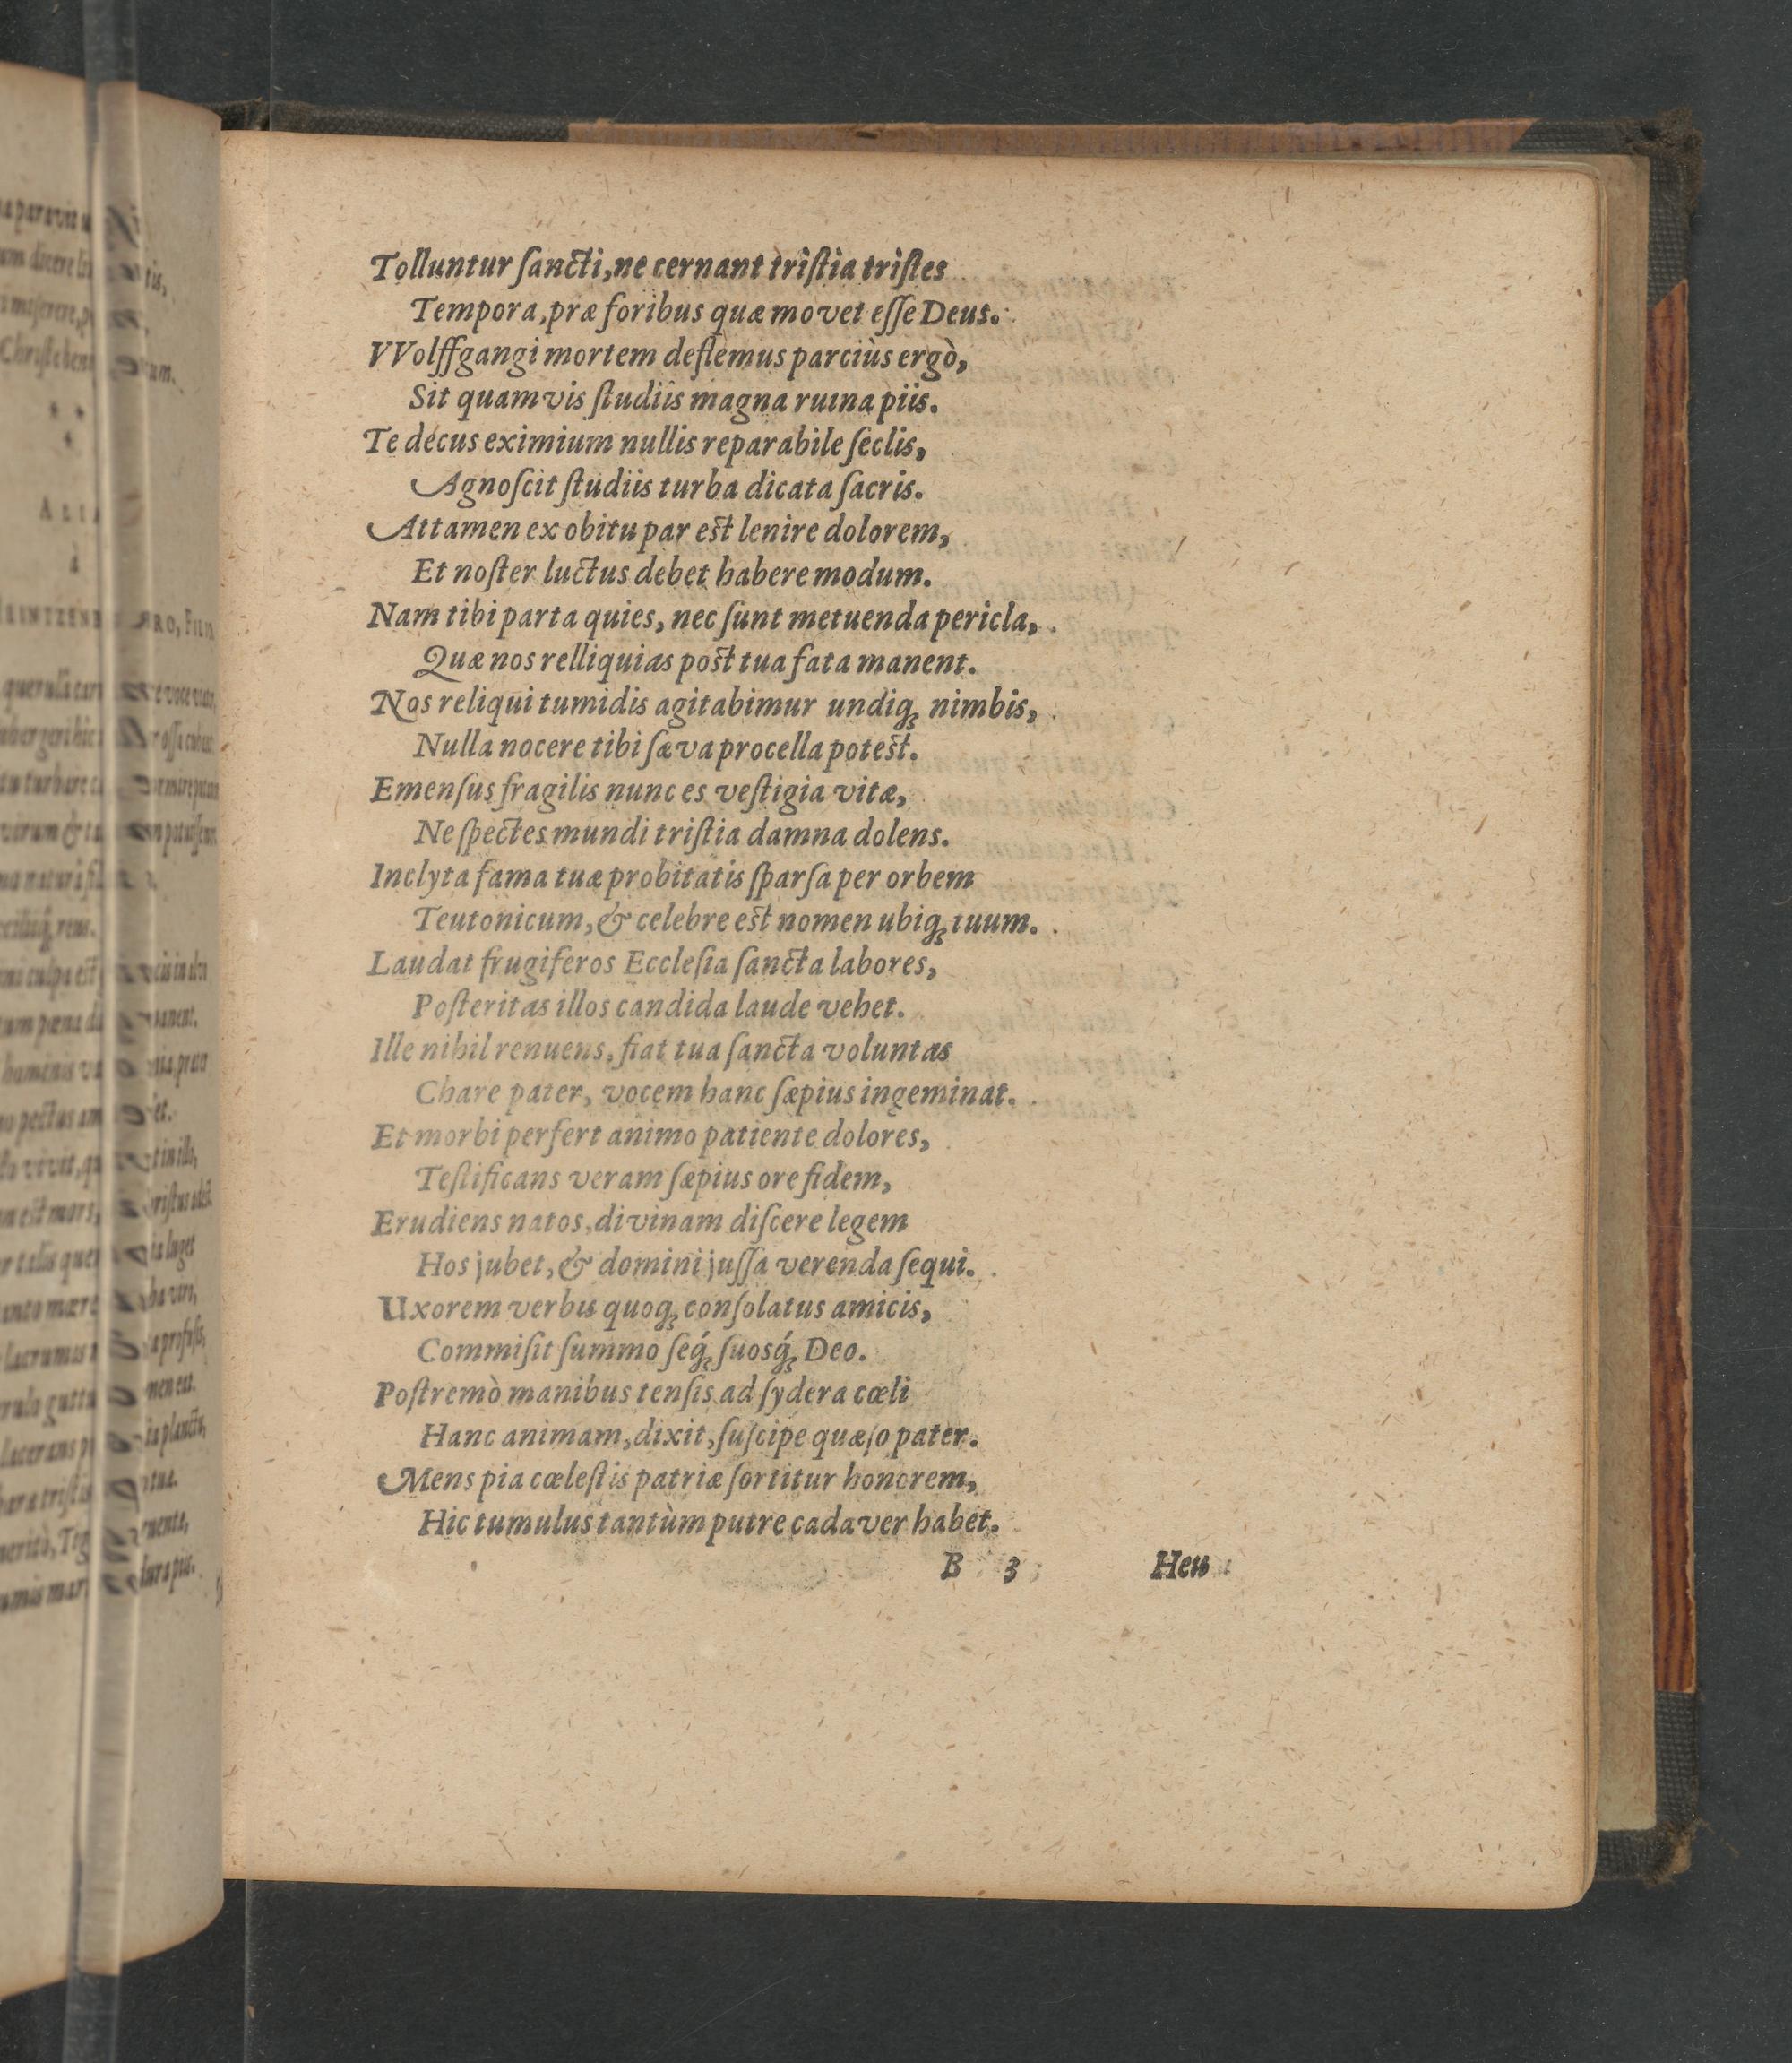 Tolluntur ſancti, ne cernant triſtia triſtes
Tempora, præ foribus quæ movet eſſe Deus.
VVolffgangi mortem deflemus parciùs ergò,
Sit quamvis ſtudiis magna ruina piis.
Te decus eximium nullis reparabile ſeclis,
Agnoſcit ſtudiis turba dicata ſacris.
Attamen ex obitu par est lenire dolorem,
Et noſter luctus debet habere modum.
Nam tibi parta quies, nec ſunt metuenda pericla,
Quæ nos relliquias post tua fata manent.
Nos reliqui tumidis agitabimur undiq; nimbis,
Nulla nocere tibi ſæva procella potest.
Emenſus fragilis nunc es veſtigia vitæ,
Ne ſpectes mundi triſtia damna dolens.
Inclyta fama tuæ probitatis ſparſa per orbem
Teutonicum, & celebre est nomen ubiq; tuum.
Laudat frugiferos Eccleſia ſancta labores,
Poſteritas illos candida laude vehet.
Ille nihil renuens, fiat tua ſancta voluntas
Chare pater, vocem hanc ſæpius ingeminat.
Et morbi perfert animo patiente dolores,
Teſtificans veram ſæpius ore fidem,
Erudiens natos, divinam diſcere legem
Hos jubet, & domini juſſa verenda ſequi.
Uxorem verbis quoq; conſolatus amicis,
Commiſit ſummo ſeq́; ſuosq́; Deo.
Poſtremò manibus tenſis ad ſydera cœli
Hanc animam, dixit, ſuſcipe quæſo pater.
Mens pia cœleſtis patriæ ſortitur honorem,
Hic tumulus tantùm putre cadaver habet.
B 3 Heu